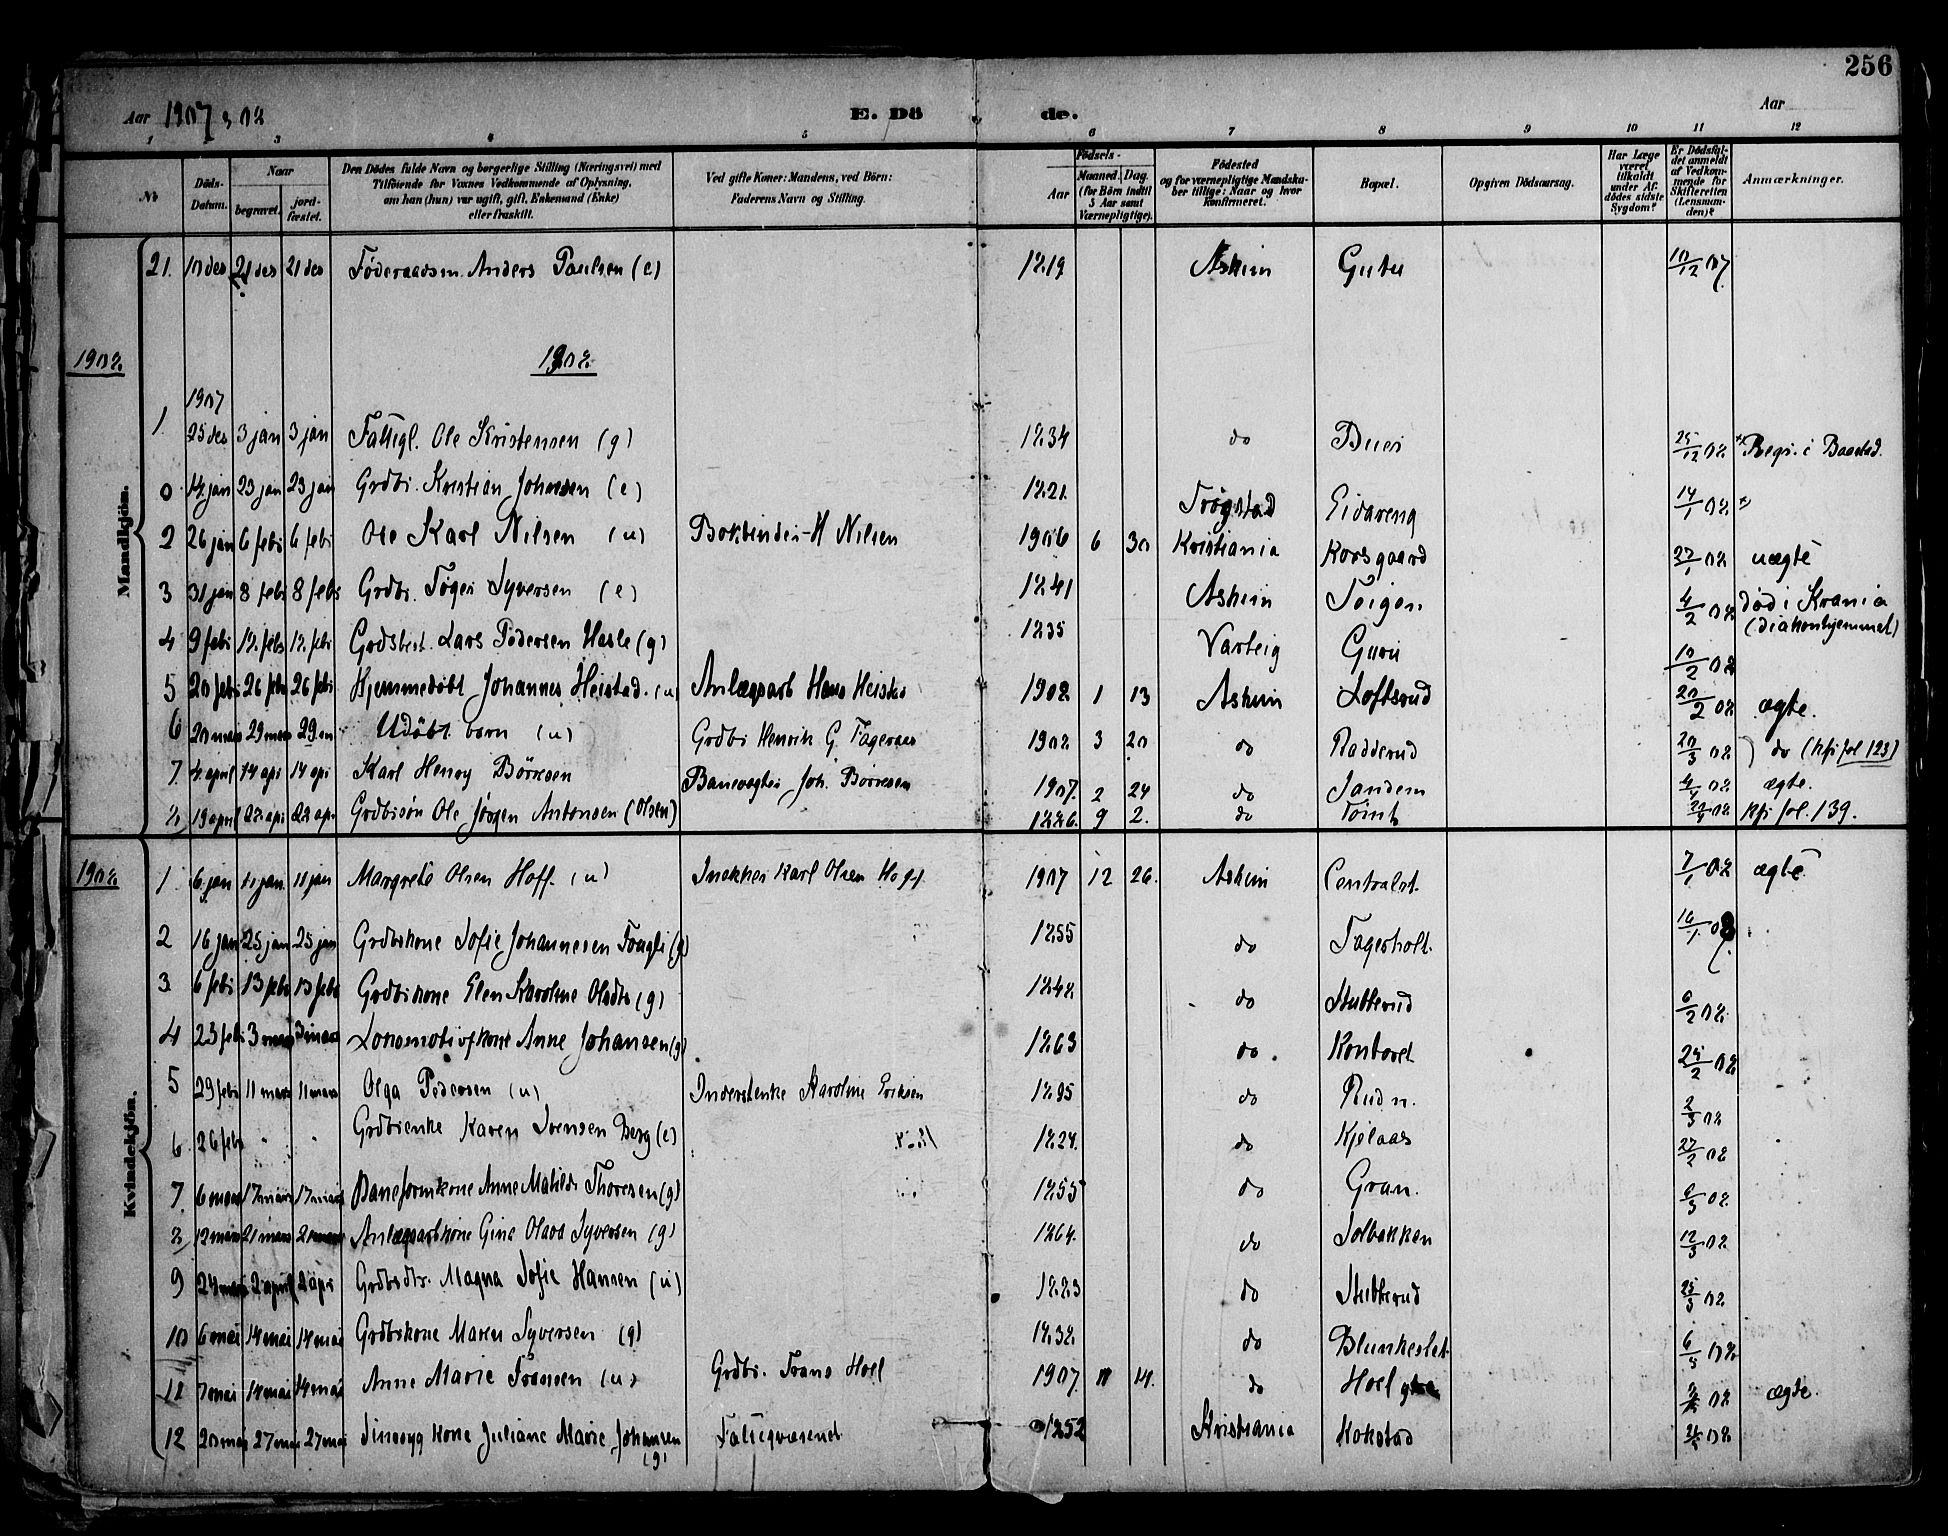 256
Aar 1907 & 08
E. Döde.
Aar
1 3 4 5 6 7 8 9 10 11 12
No
Döds-Datum.
Naar
begravet.
jordfæstet.
Den Dödes fulde Navn og borgerlige Stilling (Næringsvei) med Tilföiende for Voxnes Vedkommende af Oplysning, om han (hun) var ugift, gift, Enkemand (Enke) eller fraskilt.
Ved gifte Koner: Mandens, ved Börn: Faderens Navn og Stilling.
Födsels-
Aar
Maaned. Dag. (for Börn indtil 5 Aar samt Værnepligtige).
Födested og for værnepligtige Mandskaber tillige: Naar og hvor konfirmeret.
Bopæl.
Opgiven Dödsaarsag.
Har Læge været tilkaldt under Afdödes sidste Sygdom?
Er Dödsfaldet anmeldt af Vedkommende for Skifteretten (Lensmanden)?
Anmærkninger.
Mandkjön.
21. 10 des 21 des 21 des Föderaadsm. Anders Paulsen (e) 1819 Askim 10/12 07
1908 1908
1907
1. 25 des 3 jan 3 jan Fattigl. Ole Kristensen (g) 1834 do 25/12 08 Regi. i Baastad.
0 14 jan 23 jan 23 jan Grdbr. Kristian Johansen (e) 1821 Trøgstad Eidareng 14/1 08
2 26 jan 6 febr 6 febr Ole Karl Nilsen (u) Bokbinder H Nilsen 1906 6 30 Kristiania Korsgaard 27/1 08 uægte
3 31 jan 8 febr 8 febr Grdbr. Syversen (e) 1841 Askim 4/2 08 död i Krania (diakonhjemmet)
4 9 febr 18 febr 18 febr Grdsbest. Lars Pedersen Hasle (g) 1835 Varteig 10/2 08
5 20 febr 26 febr 26 febr Hjemmedöbt Johannes Heistad. (u) Anlægsarb Hans 1908 1 13 Askim Loftsrud 20/2 08 ægte.
6 20 mars 29 mars 29. Udöbt barn (u) Grdbr Henrik G. 1908 3 20 do Radderud 20/3 08 do (kfr fol 123)
7. 4 april 14 apr 14 apr Karl Henry Börresen Banevogter Joh. Börresen 1907. 2 24 do Sandem 4/4 08 ægte.
8 19 april 28 apr 28 apr Grdbrsön Ole Jörgen Antonsen (Olsen) 1886. 9 2. do Tömt 08 kfr fol. 139.
Kvindekjön.
1908 1. 6 jan 11 jan 11 jan Margrete Olsen Hoff. (u) Snekker Karl Olsen Hoff 1907 12 26. Askim Centralst. 7/1 08 ægte.
2 16 jan 25 jan 25 jan Grdbrkone Sofie Johannesen (g) 1855 do Fagerholt. 16/1 08
3. 6 febr 13 febr 13 febr Grdbrkone Elen Karoline (g) 1848 do Stubberud 6/2 08
4 23 febr 3 mars 3 mars Lokomotivfkone Anne Johansen (g) 1863 do Kontoret 25/2 08
5 29 febr 11 mars 11 mars Olga Pedersen (u) Inderstenke Karoline Eriksen 1895 do Rud n. 2/3 08
6 26 febr " " Grdbrenke Karen Sörensen Berg (e) 1824. do Kjelaas 27/2 08
7. 6 mars 17 mars 17 mars Baneformkone Anne Matilde Thoresen (g) 1855 do Gran. 9/3 08
8 12 mars 21 mars 21 mars Anlægsarbkone Gina Olava Syversen (g) 1864. do Solbakken 12/3 08
9 24 mars 2 april 2 apr Grdbrdtr. Magna Sofie Hansen (u) 1883 do Stubberud 25/3 08
10 6 mai 14 mai 14 mai Grdbrkone Maren Syversen (g) 1832. do 6/5 08
11 7 mai 14 mai 14 mai Anne Marie Fransen (u) Grdbr. Frans Hoel 1907. do Hoel 08 ægte.
12 20 mai 27 mai 27 mai kone Juliane Marie Johansen (g) Fattigvæsenet 1852 Kristiania Kokstad 08